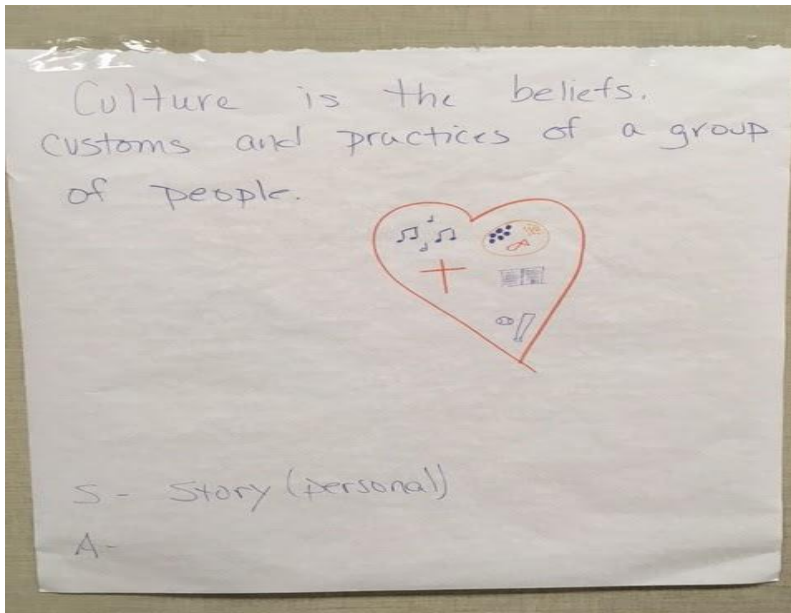 Culture is the beliefs.
customs and practices of a group
of people.
S- Story (personal)
A-